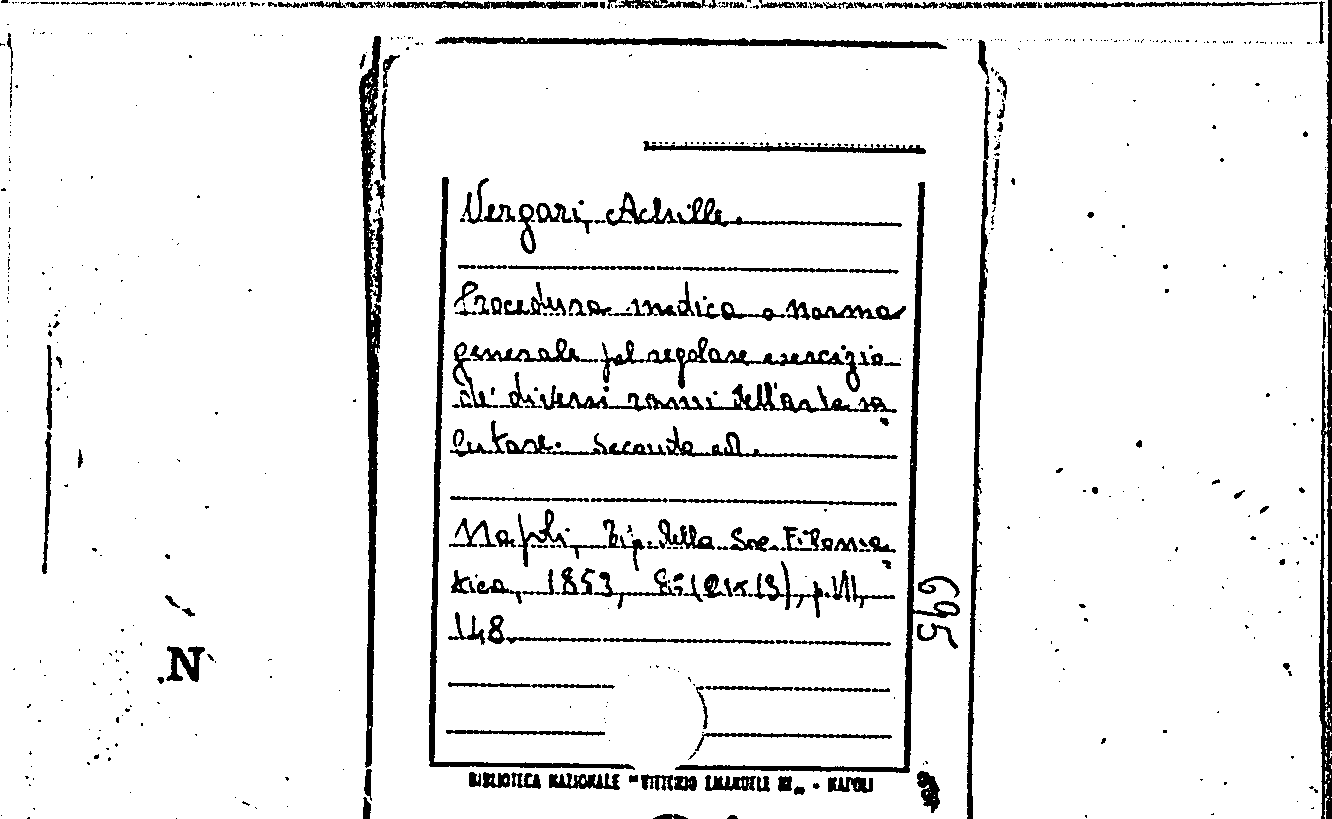 Vergari, Achille.
Procedura medica o norma
generale pel regolare esercizio
de' diversi rami dell'arte sa=
lutare. Seconda ed.
Napoli, Tip. della Soc. Filoma=
tica, 1853, 8º (21x13), p. VII,
148.
695
N
BIBLIOTECA NAZIONALE "VITTORIO EMANUELE III" - NAPOLI